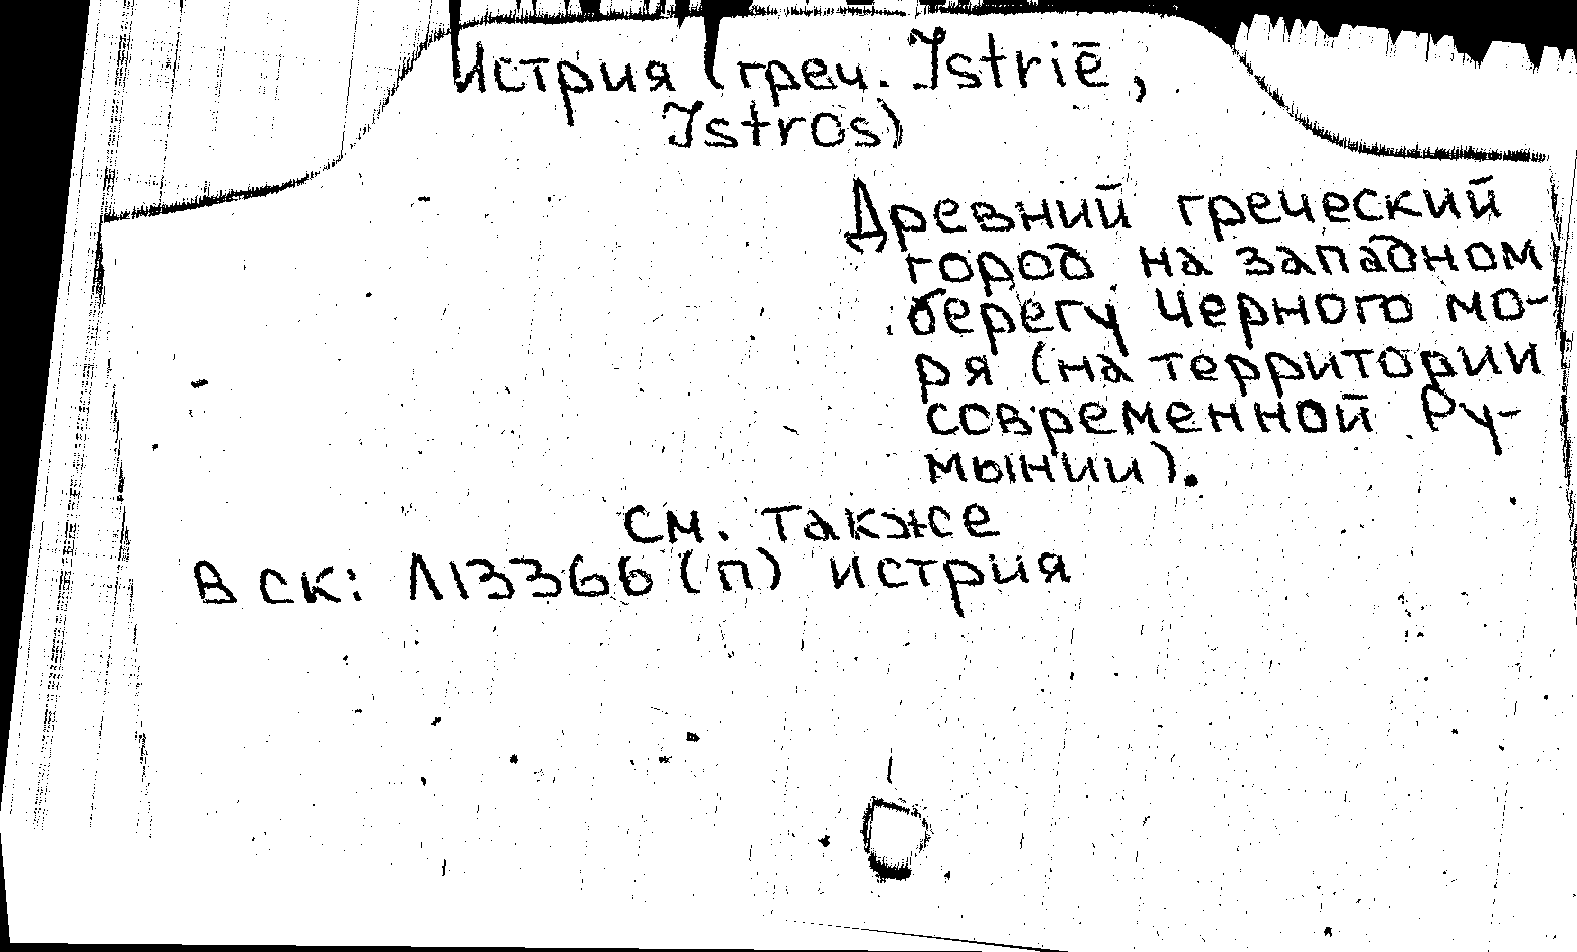 Истрия (греч. Istriē,
Istros)
Древний греческий
город на западном
берегу Черного мо-
ря (на территории
современной Ру-
мынии).
см. также
В СК: Л13366(п) Истрия